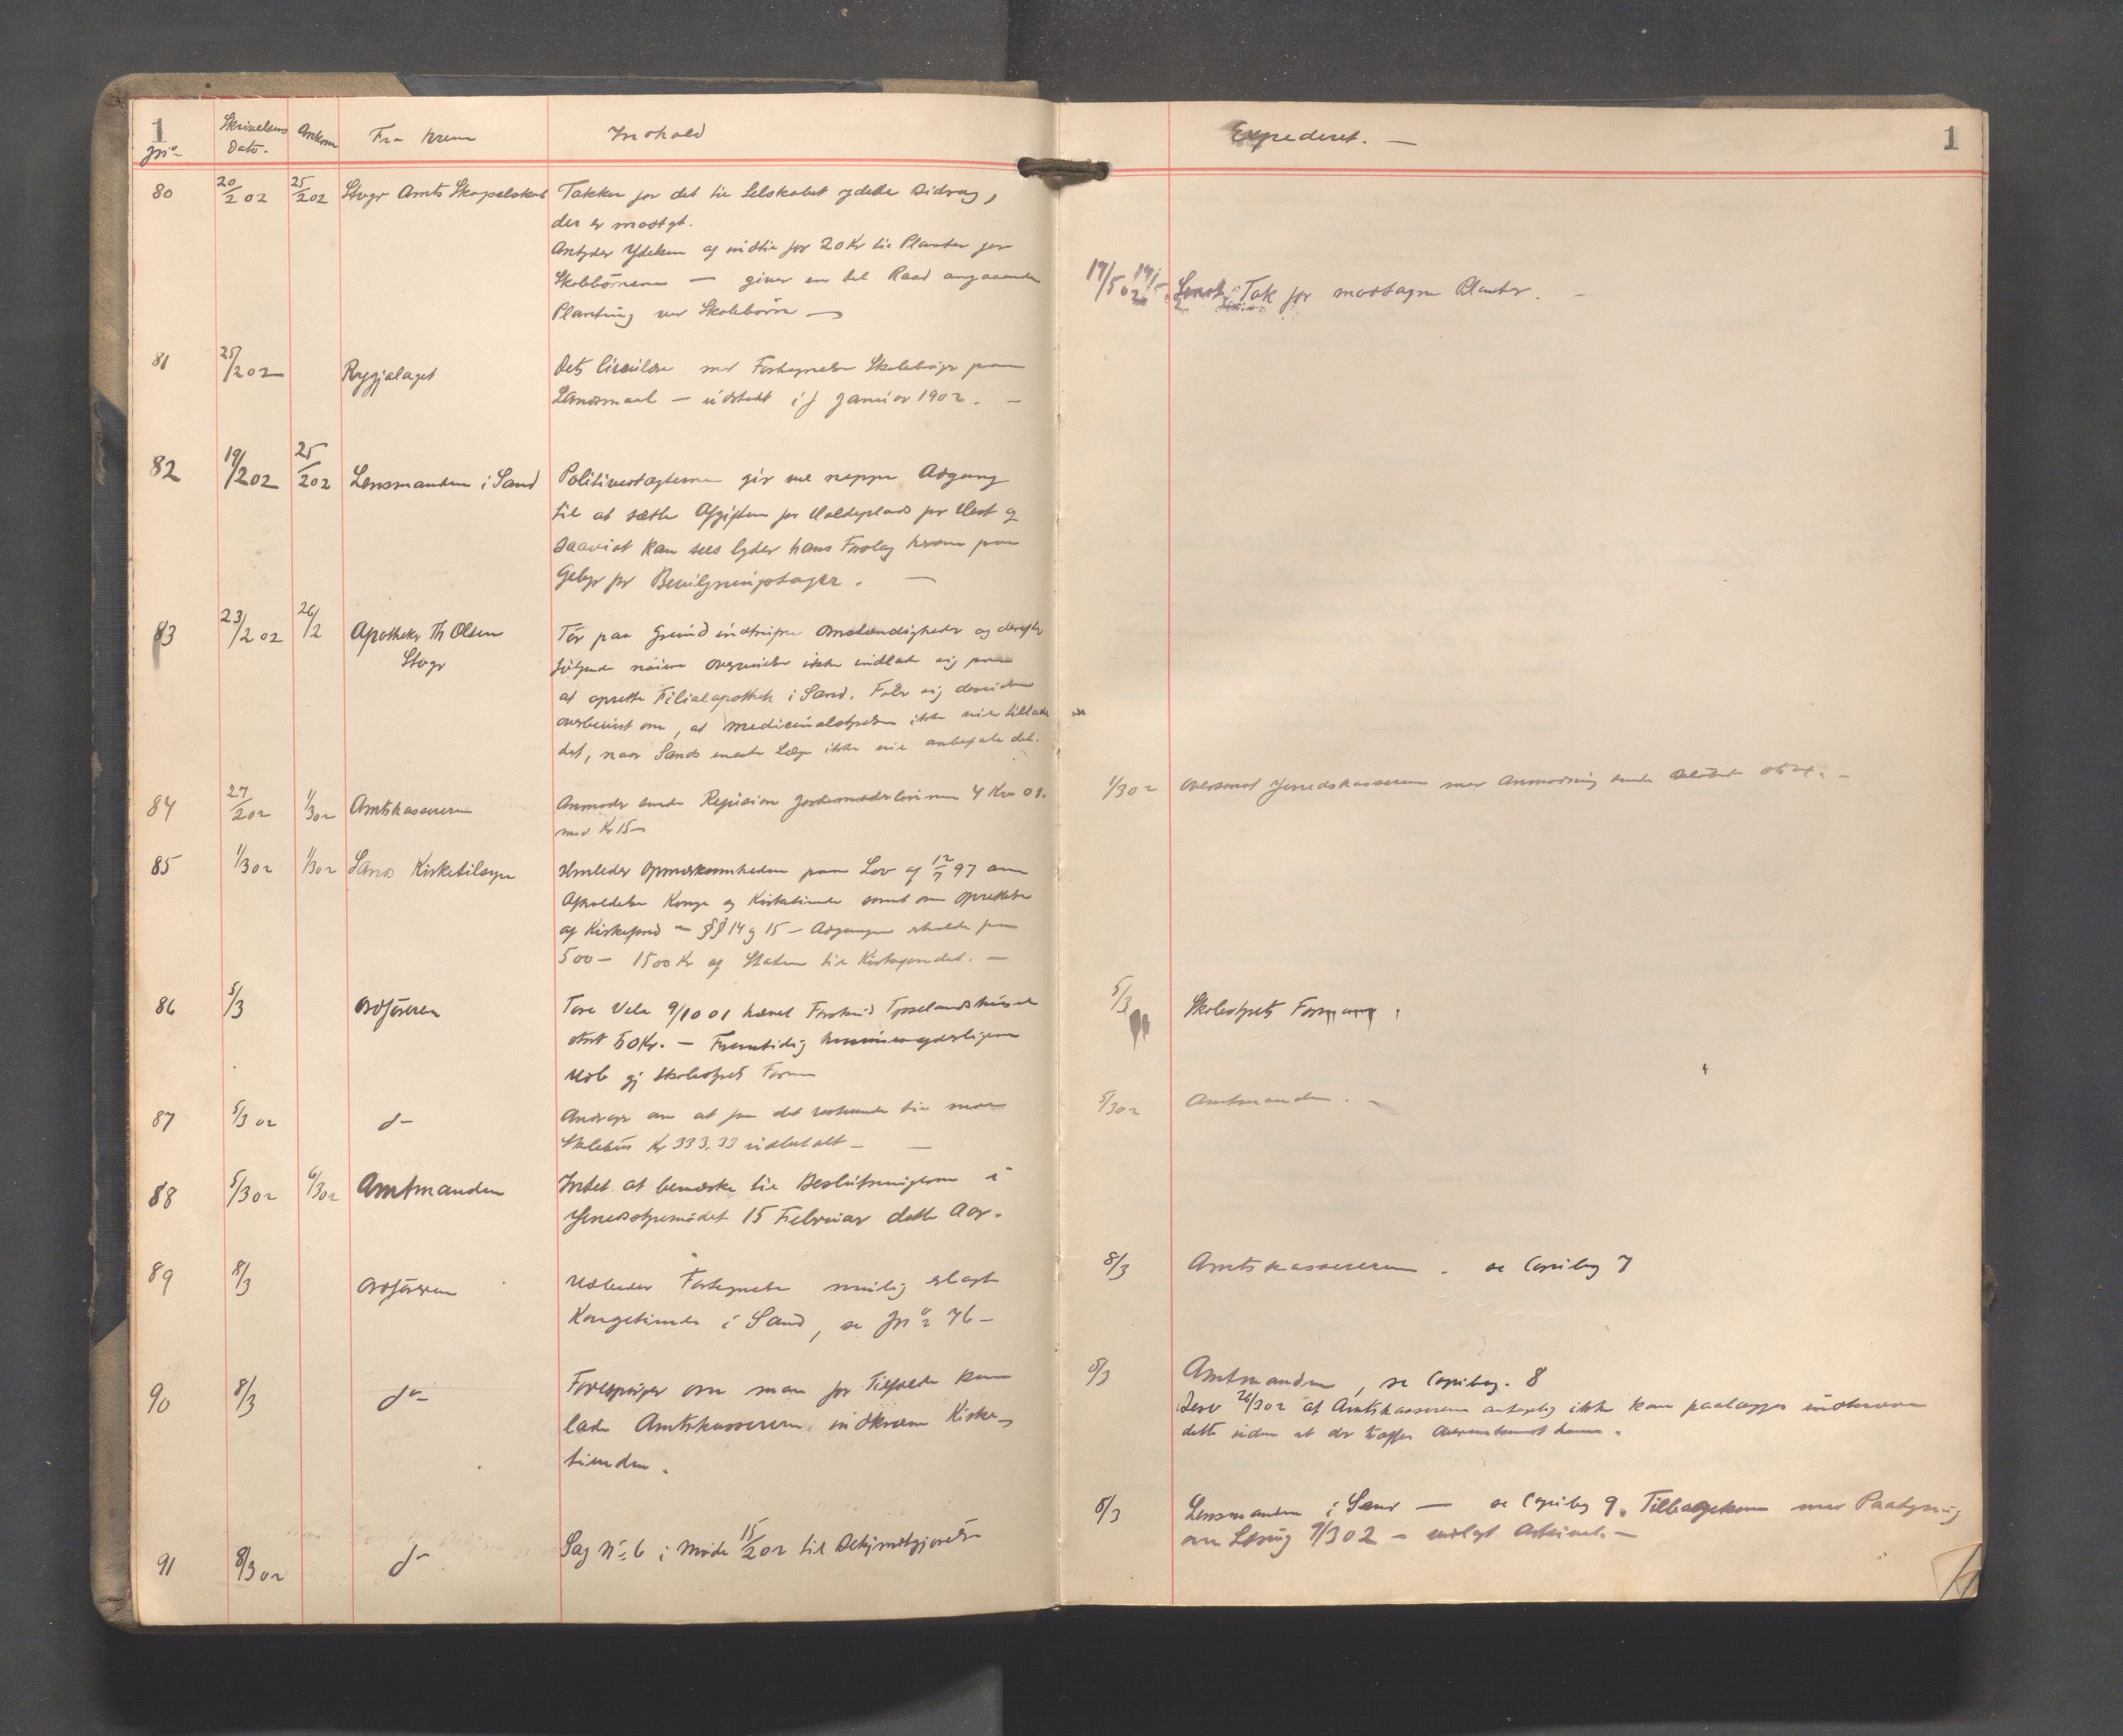 1
Jnr
Skrivelsens Dato.
Ankom
Fra hvem
Indhold
Expederet. —
1
80 20/2 02 25/2 02 Stvgr Amts Skogselskab Takker for det til Selskabet ydede Bidrag,
der er modtgt.
Antyder Ydelsen af indtil for 20 Kr til Planter for
Skolebørnene — giver en del Raad angaaende
Planting ved Skolebørn —
17/5 02 Sendt Tak for modtagne Planter. —
81 25/2 02 Rygjalaget Dets Circulære med Fortegnelse Skolebøger paa
Landsmaal — udstedt i Januar 1902. —
82 19/2 02 25/2 02 Lensmanden i Sand Politivedtægterne gir vel neppe Adgang
til at sætte Afgiften for Holdeplads for Hest og
saavidt kan sees lyder hans Forslag kun paa
Gebyr for Bevilgningstager. —
83 23/2 02 26/2 Apotheker Th Olsen
Stvgr
Tør paa Grund indtrufne Omstændigheder og derefter
følgende nøiere overveielse ikke indlade sig paa
at oprette Filialapothek i Sand. Føler sig desuden
overbevist om, at Medicinalstyrelsen ikke vil tillade
det, naar Sands eneste Læge ikke vil anbefale det.
84 27/2 02 1/3 02 Amtskassereren Anmoder sende Refusion Jordemoderlønnen 4 Kv 01.
med Kr 15 —
1/3 02 Oversendt Herredskassereren med Anmodning sende Beløbet strax. —
85 1/3 02 1/3 02 Sands Kirketilsyn Henleder Opmærksomheden paa Lov af 12/7 97 om
Afholdelse Konge og Kirketiende samt om oprettelse
af Kirkefond — §§ 14 og 15 — Adgangen erholde fra
500 — 1500 Kr af Staten til Kirkefondet. —
86 5/3 Ordføreren Tore Vela 9/10 01 hævet Forskud Tysselandshuset
stort 50 Kr. — Fremtidig
Udb gj Skolestyrets Form
5/3 Skolestyrets Formand,
87 5/3 02 do Andrager om at faa det resterende til
Skolehus Kr 333.33 udbetalt — —
5/3 02 Amtmanden. —
88 5/3 02 6/3 02 Amtmanden Intet at bemærke til Beslutningerne i
Herredsstyremødet 15 Februar dette Aar.
89 8/3 Ordføreren Udbeder Fortegnelse mulig erlagt
Kongetiende i Sand, se Jnr 76 —
8/3 Amtskassereren. se Copibog 7
90 8/3 do Forespørger om man for Tilfælde kan
lade Amtskassereren indkræve Kirke-
tienden.
8/3 Amtmanden, se Copibog. 8
Besv 26/3 02 at Amtskassereren antagelig ikke kan paalægges inddrive
dette uden at der træffes Overenskomst
91 8/3 02 do Sag No 6 i Møde 15/2 02 til Bekjendtgjørelse
8/3 Lensmanden i Sand — se Copibog 9. Tilbagekom med Paategning
om Læsning 9/3 02 — vedlagt Arkivet. —